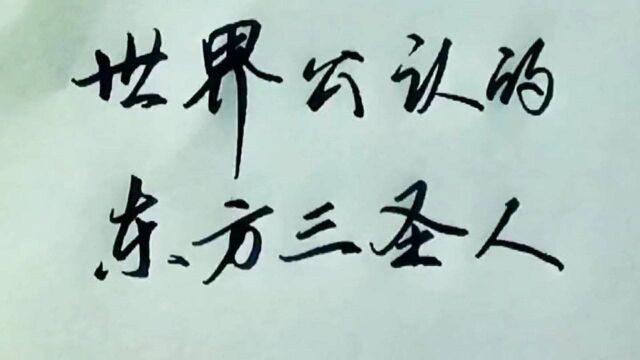 世界公认的
东方三圣人